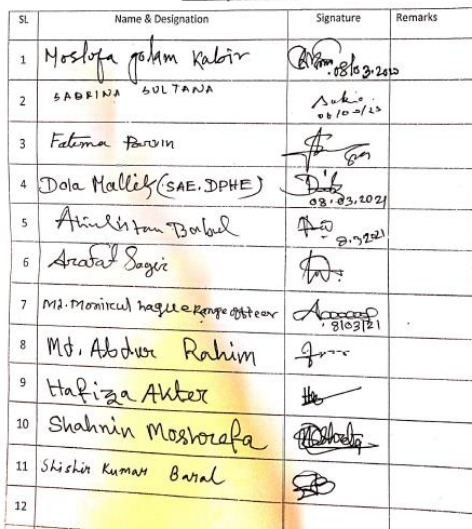 SL Name & Designation Signature Remarks
1 Mostofa golam Kabir 08/03.2020
2 SABRINA SULTANA
3 Fatema
4 Dola Mallick (SAE. DPHE) 08.03.2021
5 8.3.2021
6 Arafat Sagir
7 Md. Monirul haque Range officer 8/03/21
8 Md. Abdur Rahim
9 Hafiza Akter
10 Shahnin Mostorefa
11 Shishir Kumar Baral
12